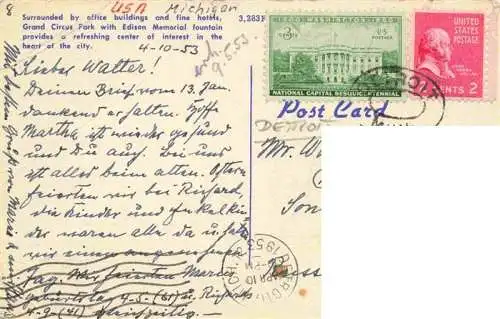 USA Michigan
Surrounded by office buildings and fine hotels,
Grand Circus Park with Edison Memorial fountain
provides a refreshing center of interest in the
heart of the city.
4-10-53
Lieber Walter!
Deinen Brief vom 13. Jan.
dankend erhalten. Hoffe
Martha ist wieder gesund
und Du auch. Bei uns
ist alles beim alten. Ostern
feierten wir bei Richard,
die Kinder und Enkelkin-
der waren alle da u. hatten
wir einen angenehmen
Tag. Wir feierten
Geburtstag 4-5- (61) u. Richards
4-9- (41) gleichzeitig.
Mit besten Grüßen von
3,283
erh.
9.5.53
3 CENTS
U.S. POSTAGE
NATIONAL CAPITAL SESQUICENTENNIAL
UNITED STATES
CENTS 2
Post Card
DETROI
Mr. W
Son
1953
APR 10